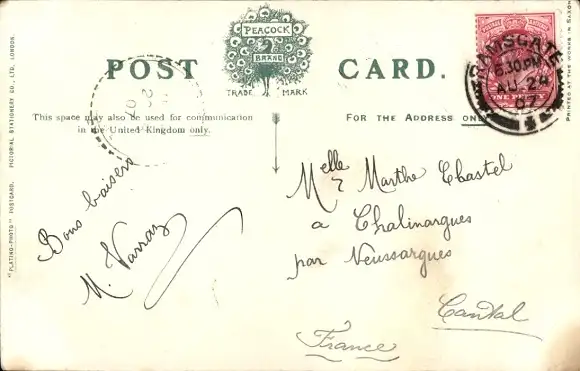 PEACOCK
BRAND
TRADE MARK
POST CARD.
This space may also be used for communication
in the United Kingdom only.
FOR THE ADDRESS ONLY
RAMSGATE
6.30 PM
AU 24
07
ONE PENNY
Bons baisers
M. Varraz
Melle Marthe Chastel
a Chalinargues
par Neussargues
Cantal
France
"PLATINO-PHOTO" POSTCARD. PICTORIAL STATIONERY CO., LTD., LONDON.
PRINTED AT THE WORKS IN SAXONY